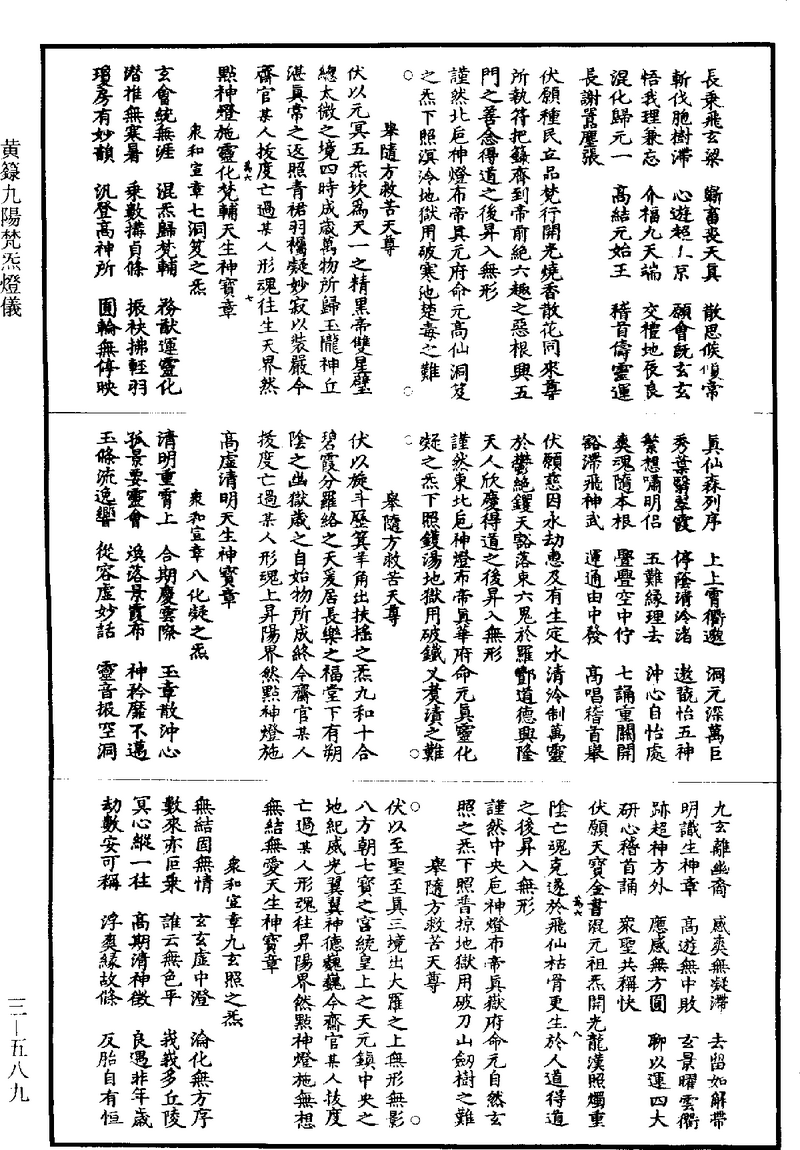 長乘飛玄梁　斸畜喪天真　散思候傾常
斬伐胞樹滯　心遊超上京　願會既玄玄
悟我理兼忘　介福九天端　交禮地夜良
混化歸元一　高結元始王　稽首儔靈運
長謝囂塵張
伏願種民立品梵行開光燒香散花同來尊
所執符把籙齊到帝前絕六趣之惡根興五
門之善念得道之後昇入無形
謹然北巨神燈布帝真元府命元高仙洞笈
之炁下照溟泠地獄用破寒池楚毒之難
○　○
舉隨方救苦天尊
伏以元冥五炁坎為天一之精黑帝雙星璧
總太微之境四時成歲萬物所歸玉隴神丘
湛真常之返照青裙羽襡凝妙寂以裝嚴今
齋官某人拔度亡過某人形魂往生天界然
萬六　七
點神燈施靈化梵輔天生神寶章
衆和宣章七洞笈之炁
玄會統無涯　混炁歸梵輔　務猷運靈化
潛推無寒暑　乘數搆貞條　振袂拂輕羽
瓊房有妙韻　汎登高神所　圓輪無停映
真仙森列序　上上霄衢邈　洞元深萬巨
秀葉翳翠霞　停蔭清泠渚　遨翫怡五神
繁想嘯明侶　五難緣理去　沖心自怡處
爽魂隨本根　亹亹空中佇　七誦重關開
豁滯飛神武　運通由中發　高唱稽首舉
伏願慈因永劫惠及有生定水清泠制萬靈
於鬱絕鑊天豁落束六鬼於羅酆道德興隆
天人欣慶得道之後昇入無形
謹然東北巨神燈布帝真華府命元真靈化
凝之炁下照鑊湯地獄用破鐵叉煑漬之難
○　○
舉隨方救苦天尊
伏以旋斗歷箕羊角出扶搖之炁九和十合
碧霞分羅絡之天爰居長樂之福堂下有朔
陰之幽獄歲之自始物所成終今齋官某人
拔度亡過某人形魂上昇陽界然點神燈施
高虛清明天生神寶章
衆和宣章八化凝之炁
清明重霄上　合期慶雲際　玉章散沖心
孤景要靈會　煥落景霞布　神衿靡不邁
玉條流逸響　從容虛妙話　靈音振空洞
九玄離幽裔　感爽無凝滯　去留如解帶
明識生神章　高遊無中敗　玄景曜雲衢
跡超神方外　應感無方圓　聊以運四大
研心稽首誦　衆聖共稱快
萬六　八
伏願天寶金書混元祖炁開光龍漢照燭重
陰亡魂克遂於飛仙枯骨更生於人道得道
之後昇入無形
謹然中央巨神燈布帝真嶽府命元自然玄
照之炁下照普掠地獄用破刀山劒樹之難
舉隨方救苦天尊
○　○
伏以至聖至真三境出大羅之上無形無影
八方朝七寶之宮統皇上之天元鎮中央之
地紀威光翼翼神德巍巍今齋官某人拔度
亡過某人形魂往昇陽界然點神燈施無想
無結無愛天生神寶章
衆和宣章九玄照之炁
無結固無情　玄玄虛中澄　淪化無方序
數來亦叵乘　誰云無色平　峩峩多丘陵
冥心縱一往　高期清神徵　良遇非年歲
劫數安可稱　浮爽緣故條　反胎自有恒
黃籙九陽梵炁燈儀
三—五八九